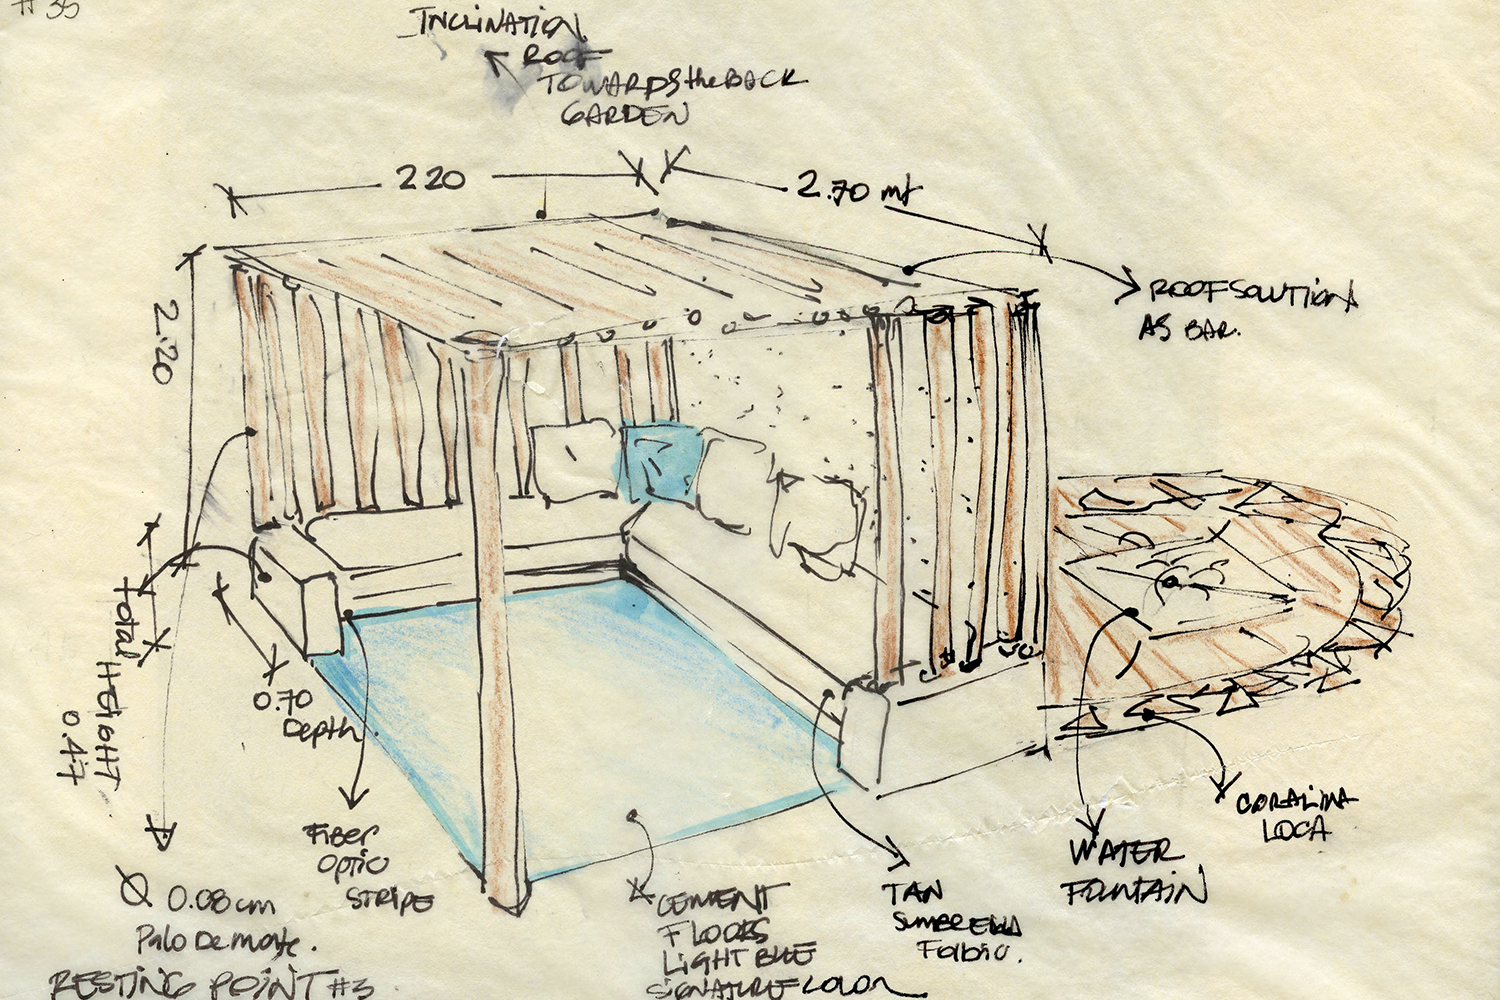 # 35
INCLINATION
ROOF
TOWARDS the BACK
GARDEN
2.20
2.70 mt
ROOF SOLUTION
AS BAR.
2.20
Total
HEIGHT
0.47
0.70
Depth
FIBER
OPTIC
STRIPE
Ø 0.08 cm
Palo De monte.
RESTING POINT #3
CEMENT
FLOORS
LIGHT BLUE
SIGNATURE COLOR
TAN
SUMBRELLA
Fabric.
WATER
FOUNTAIN
CORALINA
LOCA